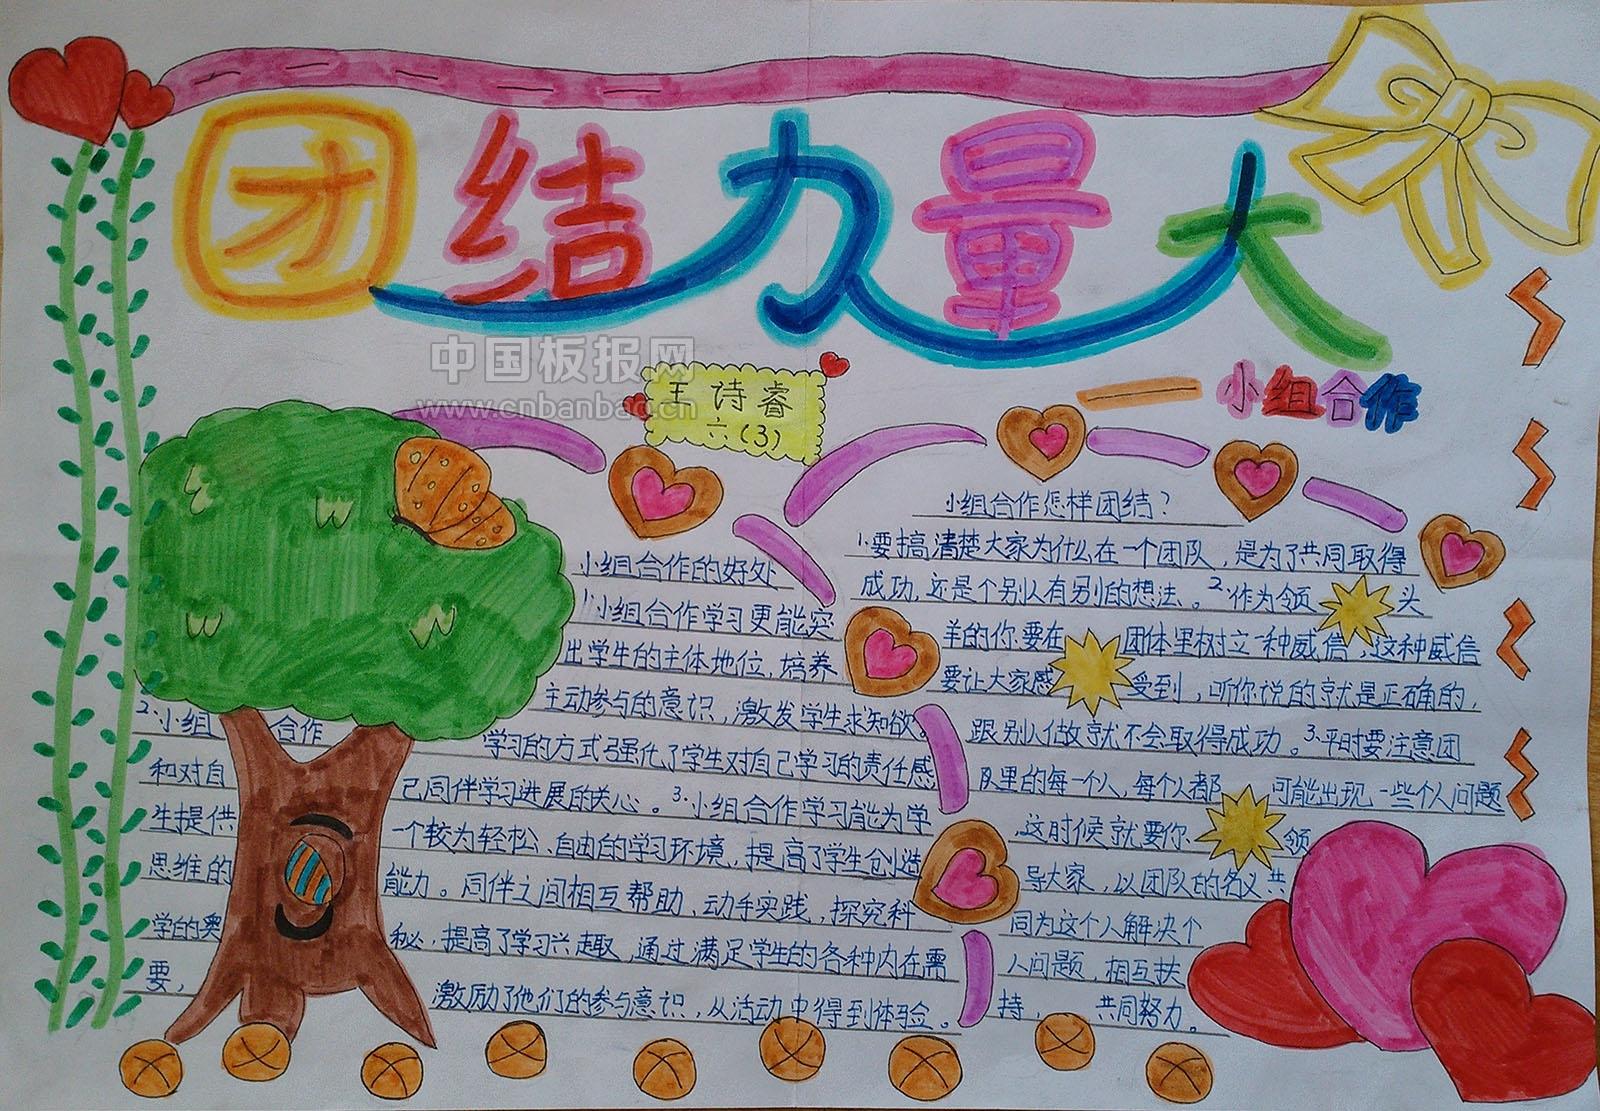 团结力量大
中国板报网
www.cnbanbao.cn
王诗睿
六(3)
一小组合作
小组合作的好处
1.小组合作学习更能突
出学生的主体地位,培养
主动参与的意识,激发学生求知欲。
2.小组合作 学习的方式强化了学生对自己学习的责任感
和对自 己同伴学习进展的关心。3.小组合作学习能为学
生提供 一个较为轻松、自由的学习环境,提高了学生创造
思维的 能力。同伴之间相互帮助、动手实践,探究科
学的奥 秘,提高了学习兴趣,通过满足学生的各种内在需
要, 激励了他们的参与意识,从活动中得到体验。
小组合作怎样团结?
1.要搞清楚大家为什么在一个团队,是为了共同取得
成功,还是个别人有别的想法。2.作为领 头
羊的你要在 团体里树立一种威信,这种威信
要让大家感 受到,听你说的就是正确的,
跟别人做就不会取得成功。3.平时要注意团
队里的每一个人,每个人都 可能出现一些个人问题
,这时候就要你 领
导大家,以团队的名义共
同为这个人解决个
人问题,相互扶
持, 共同努力。